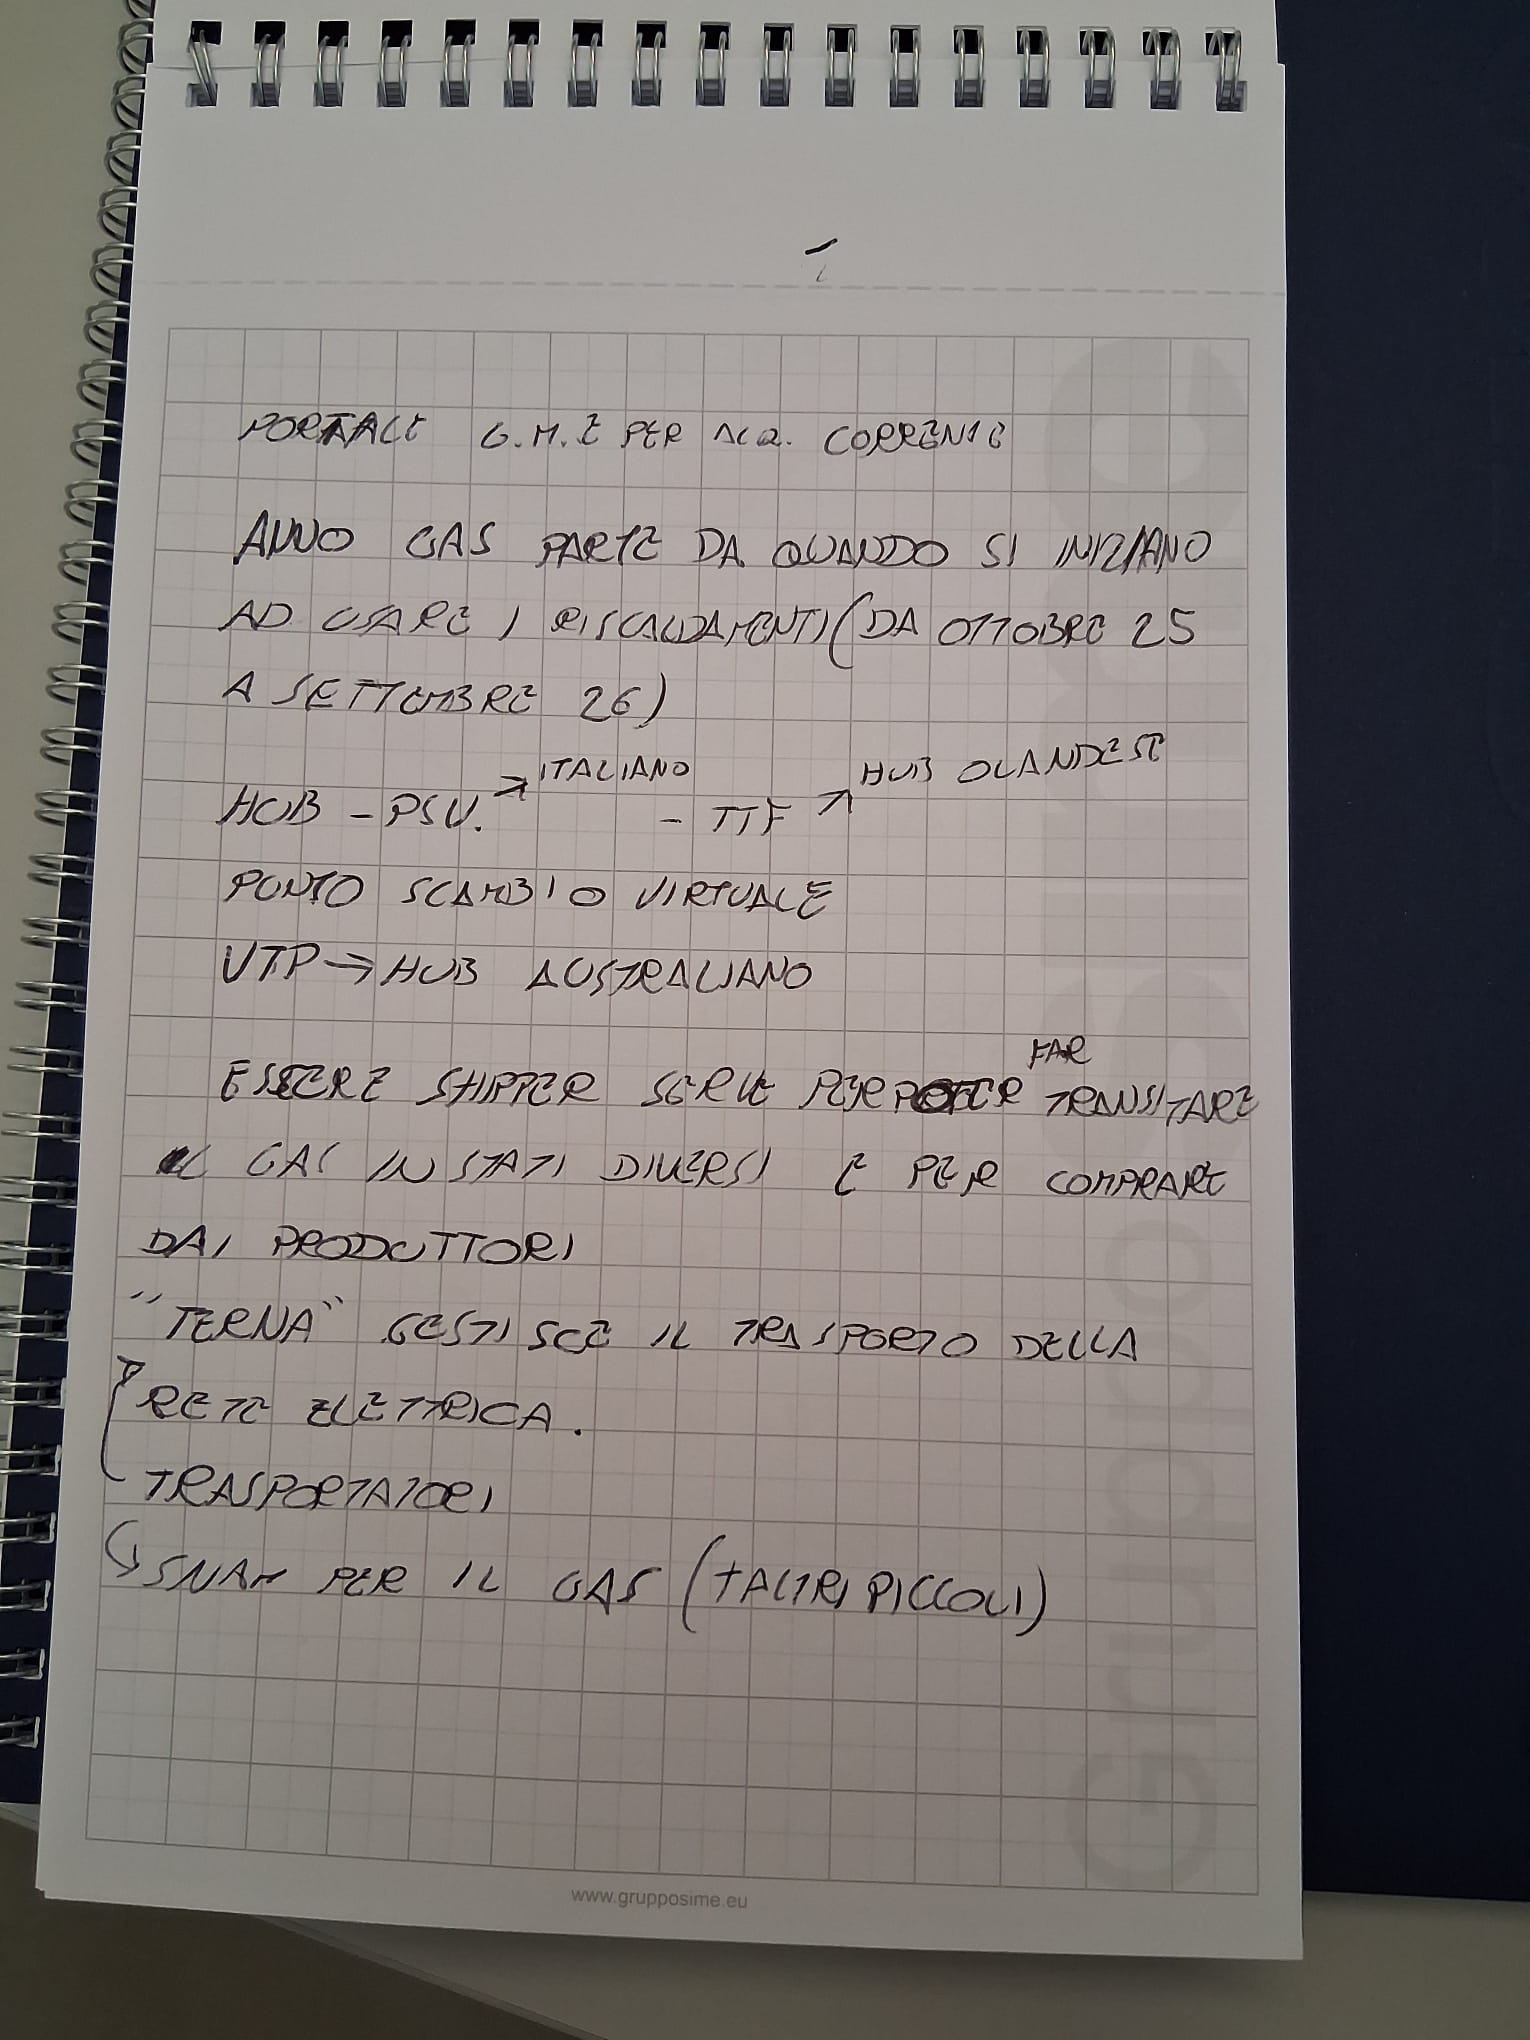 PORTALE G.M.E PER ACQ. CORRENTE
ANNO GAS PARTE DA QUANDO SI INIZIANO
AD USARE I RISCALDAMENTI (DA OTTOBRE 25
A SETTEMBRE 26)
HUB - PSV. ↗ ITALIANO - TTF ↗ HUB OLANDESE
PUNTO SCAMBIO VIRTUALE
VTP → HUB AUSTRALIANO
ESSERE SHIPPER SERVE PER POTER FAR TRANSITARE
IL GAS IN STATI DIVERSI E PER COMPRARE
DAI PRODUTTORI
"TERNA" GESTISCE IL TRASPORTO DELLA
RETE ELETTRICA.
TRASPORTATORI
SNAM PER IL GAS (+ALTRI PICCOLI)
www.grupposime.eu
Gruppo Sime